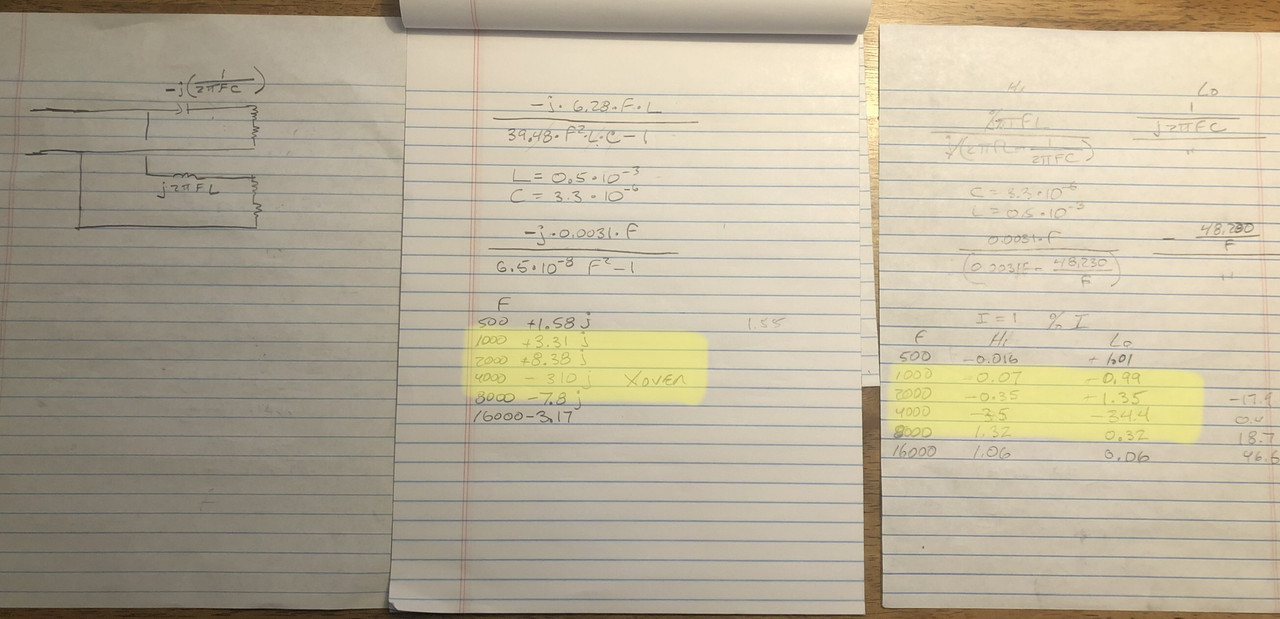 -j(1/2πFC)
j2πFL
-j·6.28·F·L
39.48·F²·L·C-1
L = 0.5·10⁻³
C = 3.3·10⁻⁶
-j·0.0031·F
6.5·10⁻⁸ F²-1
F
500 +1.58j 1.55
1000 +3.31j
2000 +8.38j
4000 -310j Xover
8000 -7.8j
16000 -3.17
Hi Lo
2πFL 1
j(2πFL - 1/2πFC) j2πFC
"
C = 3.3·10⁻⁶
L = 0.5·10⁻³
0.0031·F - 48,230/F
(0.0031F - 48,230/F) "
I = 1 % I
F Hi Lo
500 -0.016 -1.01
1000 -0.07 -0.99
2000 -0.35 -1.35 -17.9
4000 -35 -34.4
8000 1.32 0.32 18.7
16000 1.06 0.06 46.6